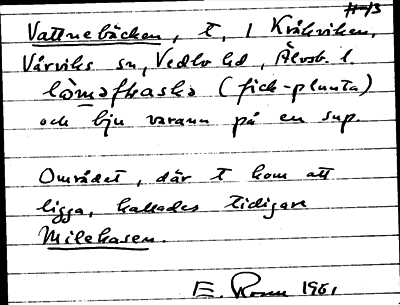 H-13
Vattnebäcken, t, i Kråkviken,
Vårviks sn, Vedbo hd, Älvsb. l.
lòmmflaska (fick-plunta)
och bju varann på en sup
Området, där t kom att
ligga, kallades tidigare
Milehasen.
E. 1961